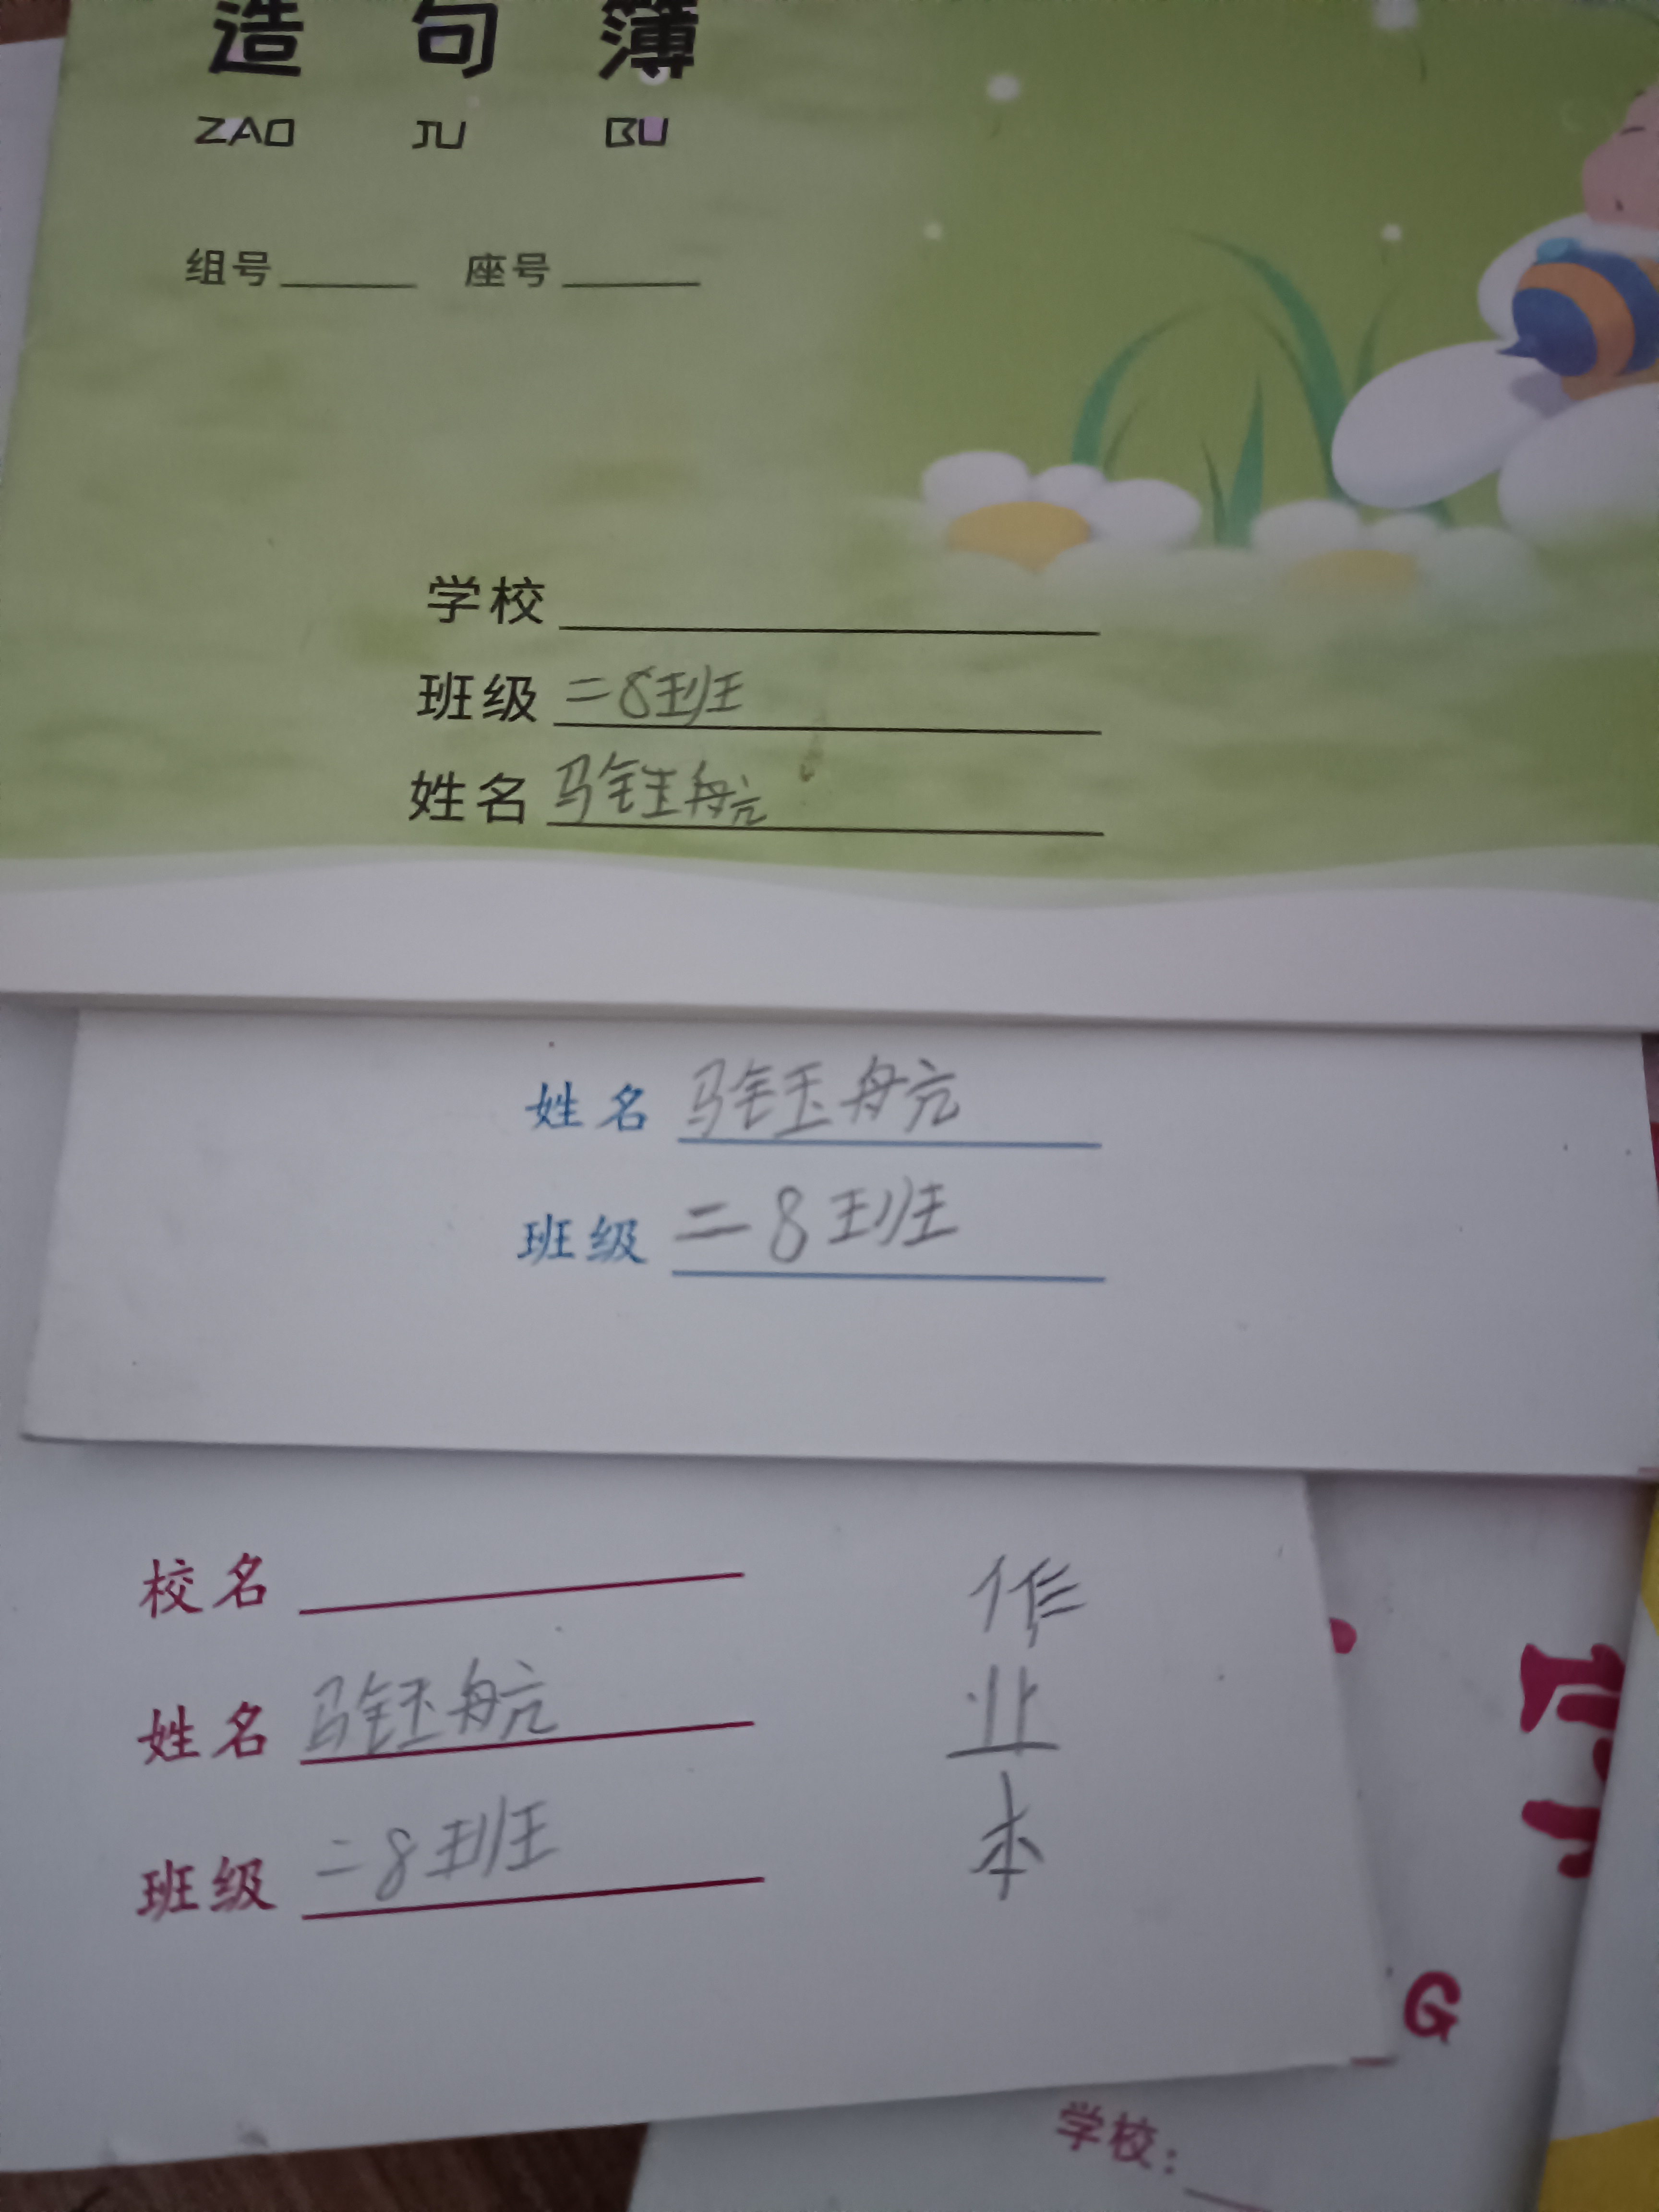 造句簿
ZAO JU BU
组号 座号
学校
班级 二8班
姓名 马钰航
姓名 马钰航
班级 二8班
校名
姓名 马钰航
班级 二8班
作
业
本
G
学校: